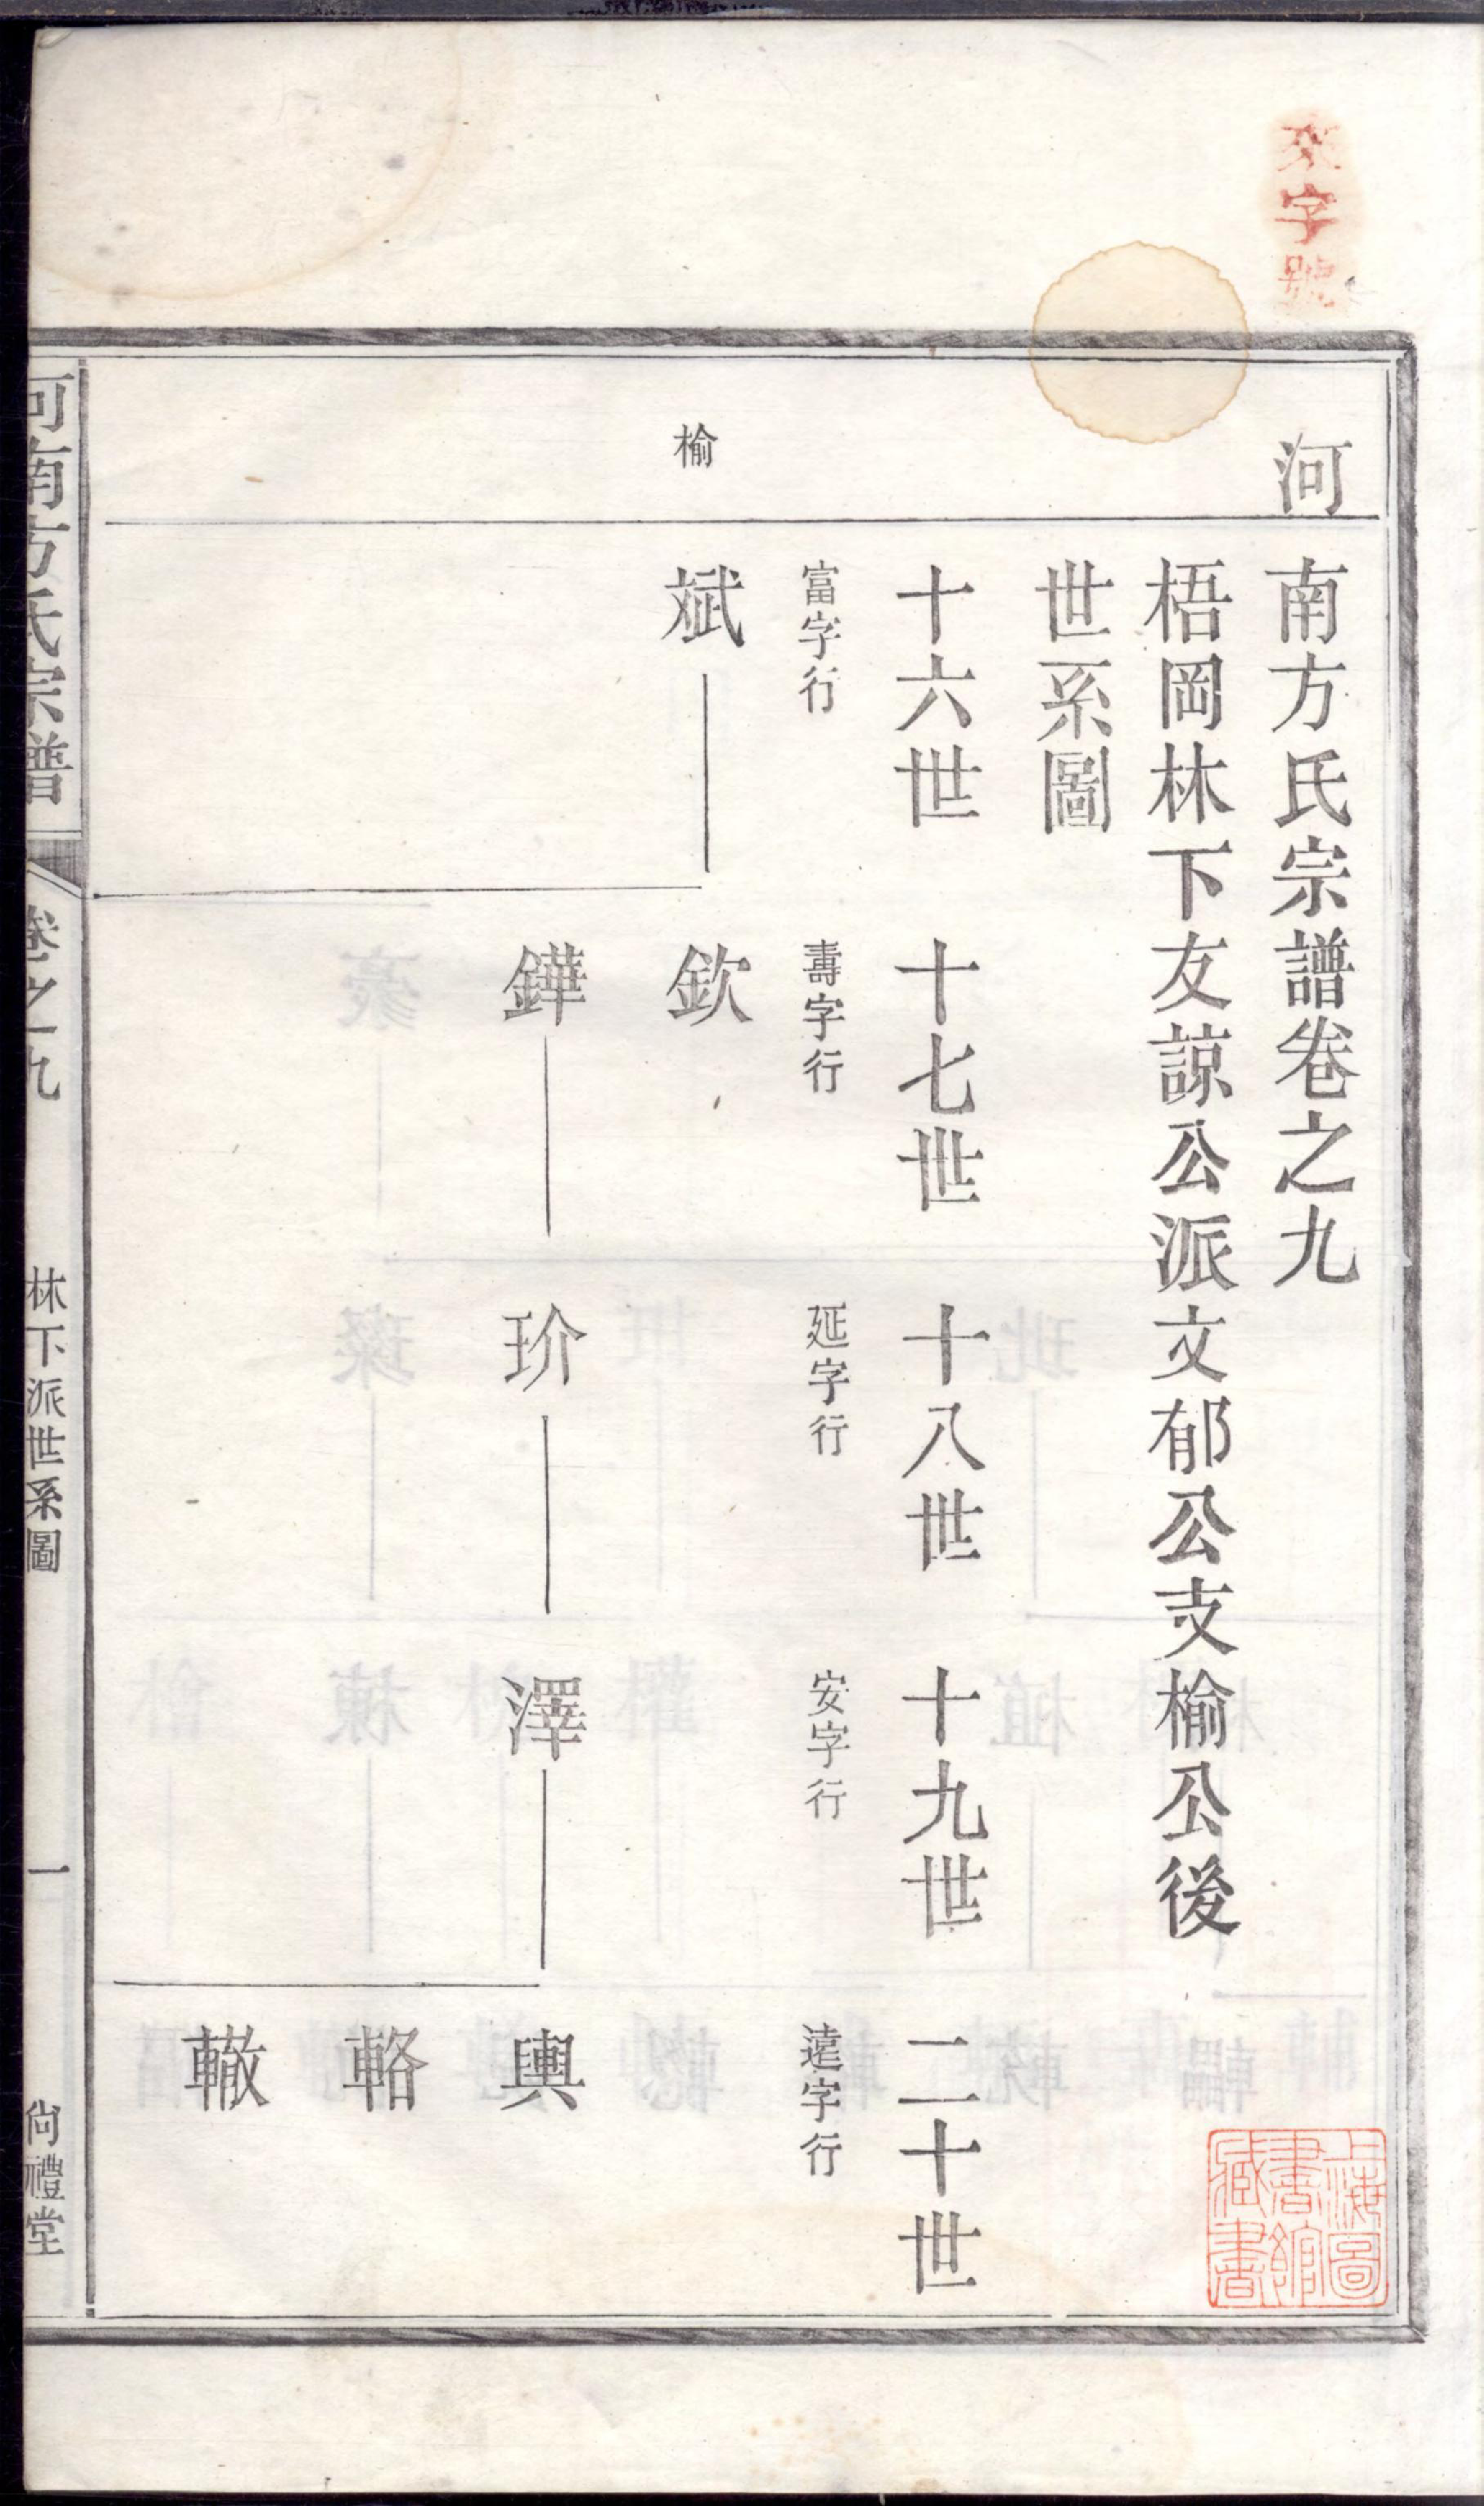 來字號
河南方氏宗譜卷之九
梧岡林下友諒公派文郁公支榆公後
世系圖
十六世 十七世 十八世 十九世 二十世
富字行 壽字行 延字行 安字行 遠字行
榆 斌 欽
鏵 玠 澤 輿
輅
轍
河南方氏宗譜 卷之九 林下派世系圖 一 尙禮堂
上海圖書館藏書